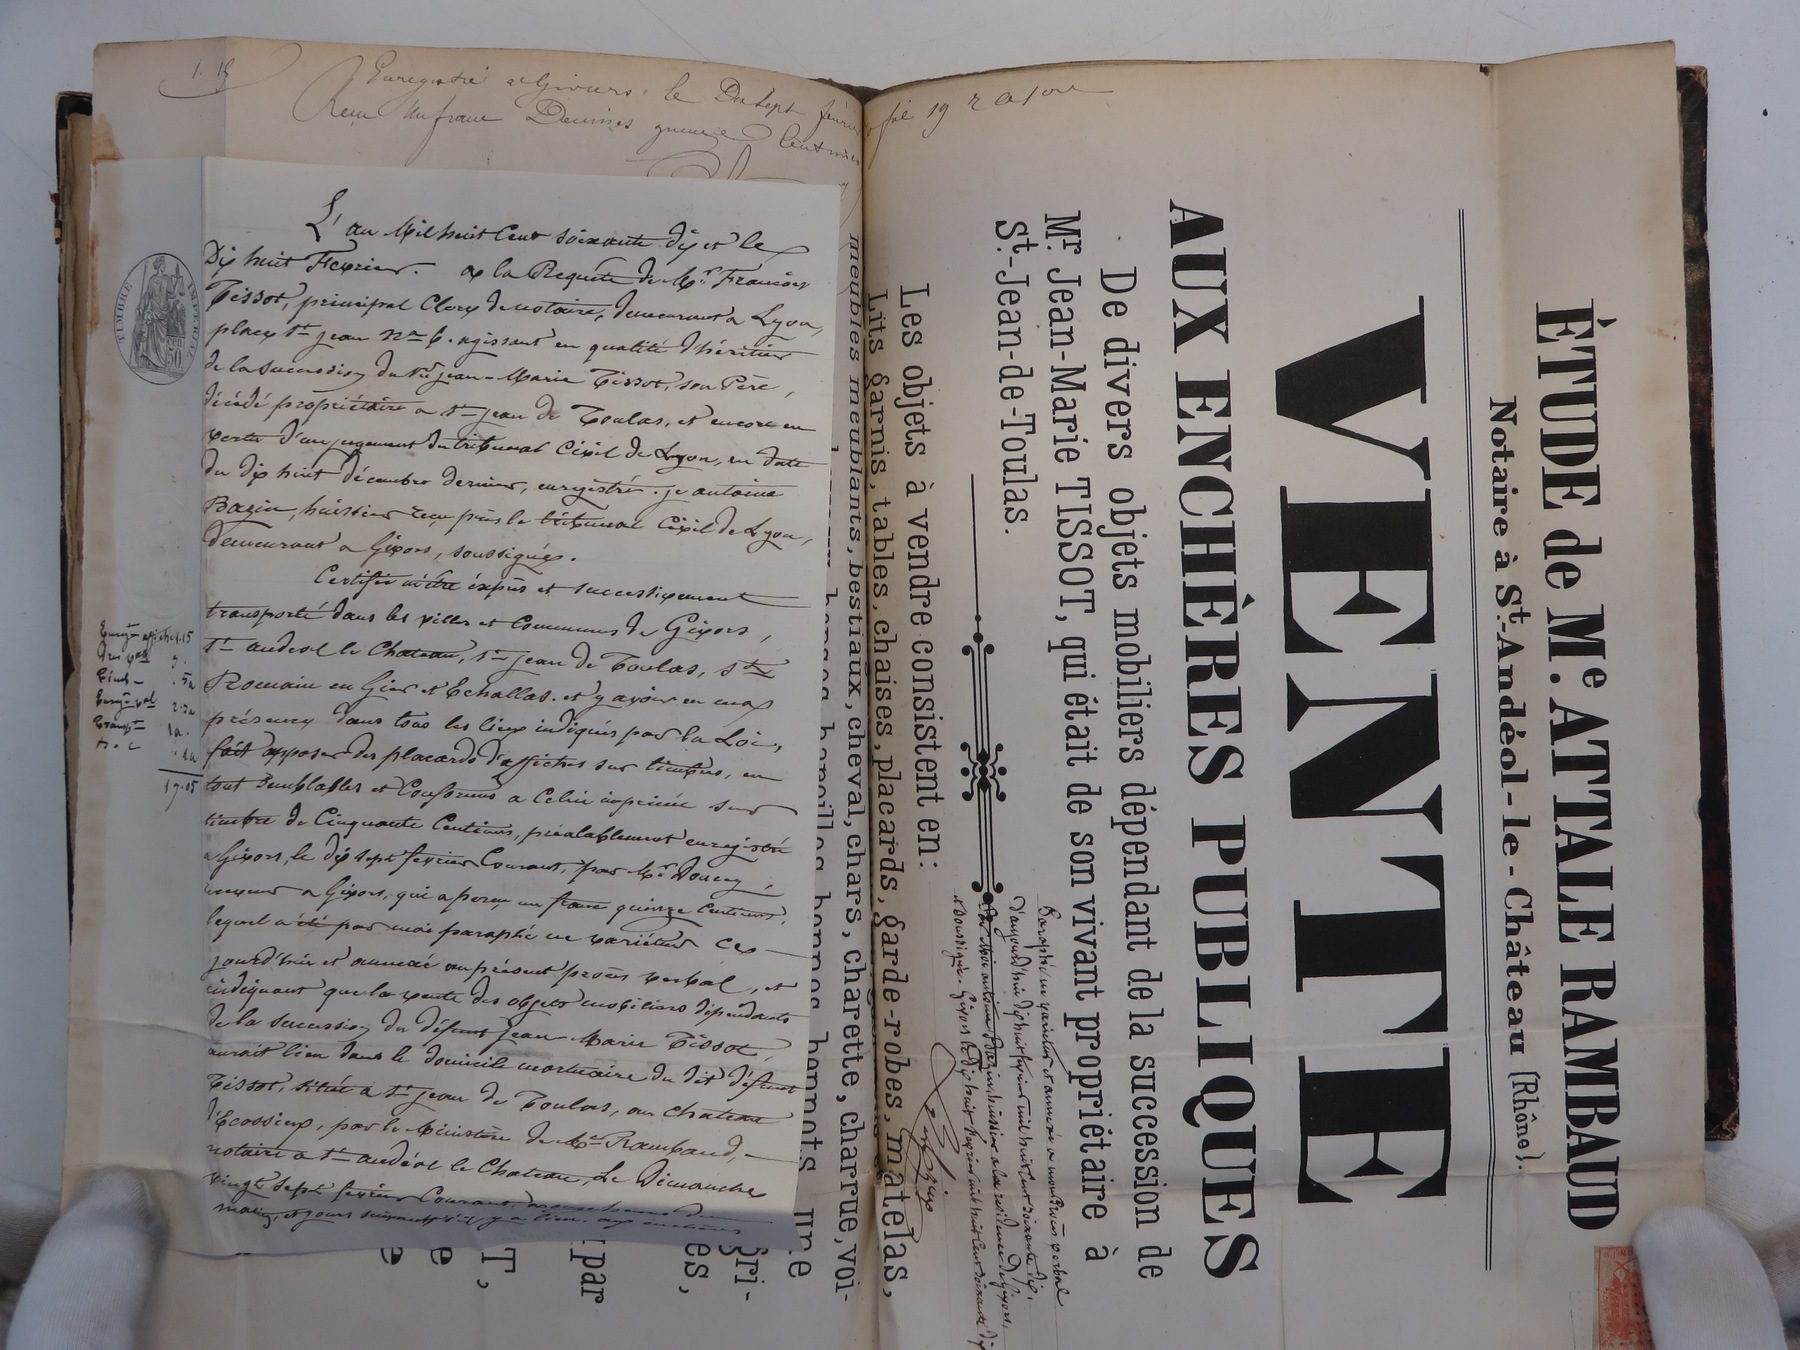 1.15
Enregistré à Givors, le Dix sept février fol 19 r
Reçu Un franc Décimes quinze Centimes
TIMBRE IMPERIAL
50 cen
L'an Mil huit Cent soixante dix et le
Dix huit Fevrier. a la Requête de Mr. François
Tissot, principal Clerc de notaire, demeurant a Lyon,
place St Jean no 6. agissant en qualité d'héritier
de la succession du Sr Jean-Marie Tissot, son Père,
décédé propriétaire a St Jean de Toulas, et encore en
vertu d'un jugement du tribunal Civil de Lyon, en date
du dix huit décembre dernier, enregistré. je antoine
Bazin, huissier reçu près le tribunal Civil de Lyon,
demeurant a Givors, soussigné.
Certifie m'être exprès et successivement
transporté dans les villes et Communes de Givors,
St andéol le Chateau, St Jean de Toulas, St
Romain en Gier et Echallas. et y avoir en ma
présence dans tous les lieux indiqués par la Loi,
fait apposer des placards d'affiches sur timbre, en
tout semblables et Conformes a Celui imprimé sur
timbre de Cinquante Centimes, préalablement enregistré
a Givors, le dix sept fevrier Courant, par Mr
receveur a Givors, qui a perçu un franc quinze Centimes,
lequel a été par moi paraphé ne varietur ce
jourd'hui et annexé au présent procès verbal, et
indiquant que la vente des objets mobiliers dépendants
de la succession du défunt Jean-Marie Tissot,
aurait lieu dans le domicile mortuaire du dit défunt
Tissot, situé a St Jean de Toulas, au Chateau
d'Ecossieu, par le Ministère de Me Rambaud,
notaire a St andéol le Chateau, Le Dimanche
vingt sept fevrier Courant,
matin, et jours suivants s'il y a lieu, aux enchères
1.15
19.05
ÉTUDE de Me. ATTALE RAMBAUD
Notaire à St.-Andéol-le-Château (Rhône).
VENTE
AUX ENCHÈRES PUBLIQUES
De divers objets mobiliers dépendant de la succession de
Mr Jean-Marie TISSOT, qui était de son vivant propriétaire à
St.-Jean-de-Toulas.
Paraphé ne varietur et annexé a mon Procès verbal
d'aujourd'hui dix huit fevrier mil huit cent soixante dix,
Par Moi antoine Bazin, huissier a la residence de Givors,
soussigné. Givors le dix huit fevrier mil huit cent soixante dix
Les objets à vendre consistent en:
Lits garnis, tables, chaises, placards, garde-robes, matelas,
meubles meublants, bestiaux, cheval, chars, charette, charrue, voi-
bennes, benots, une